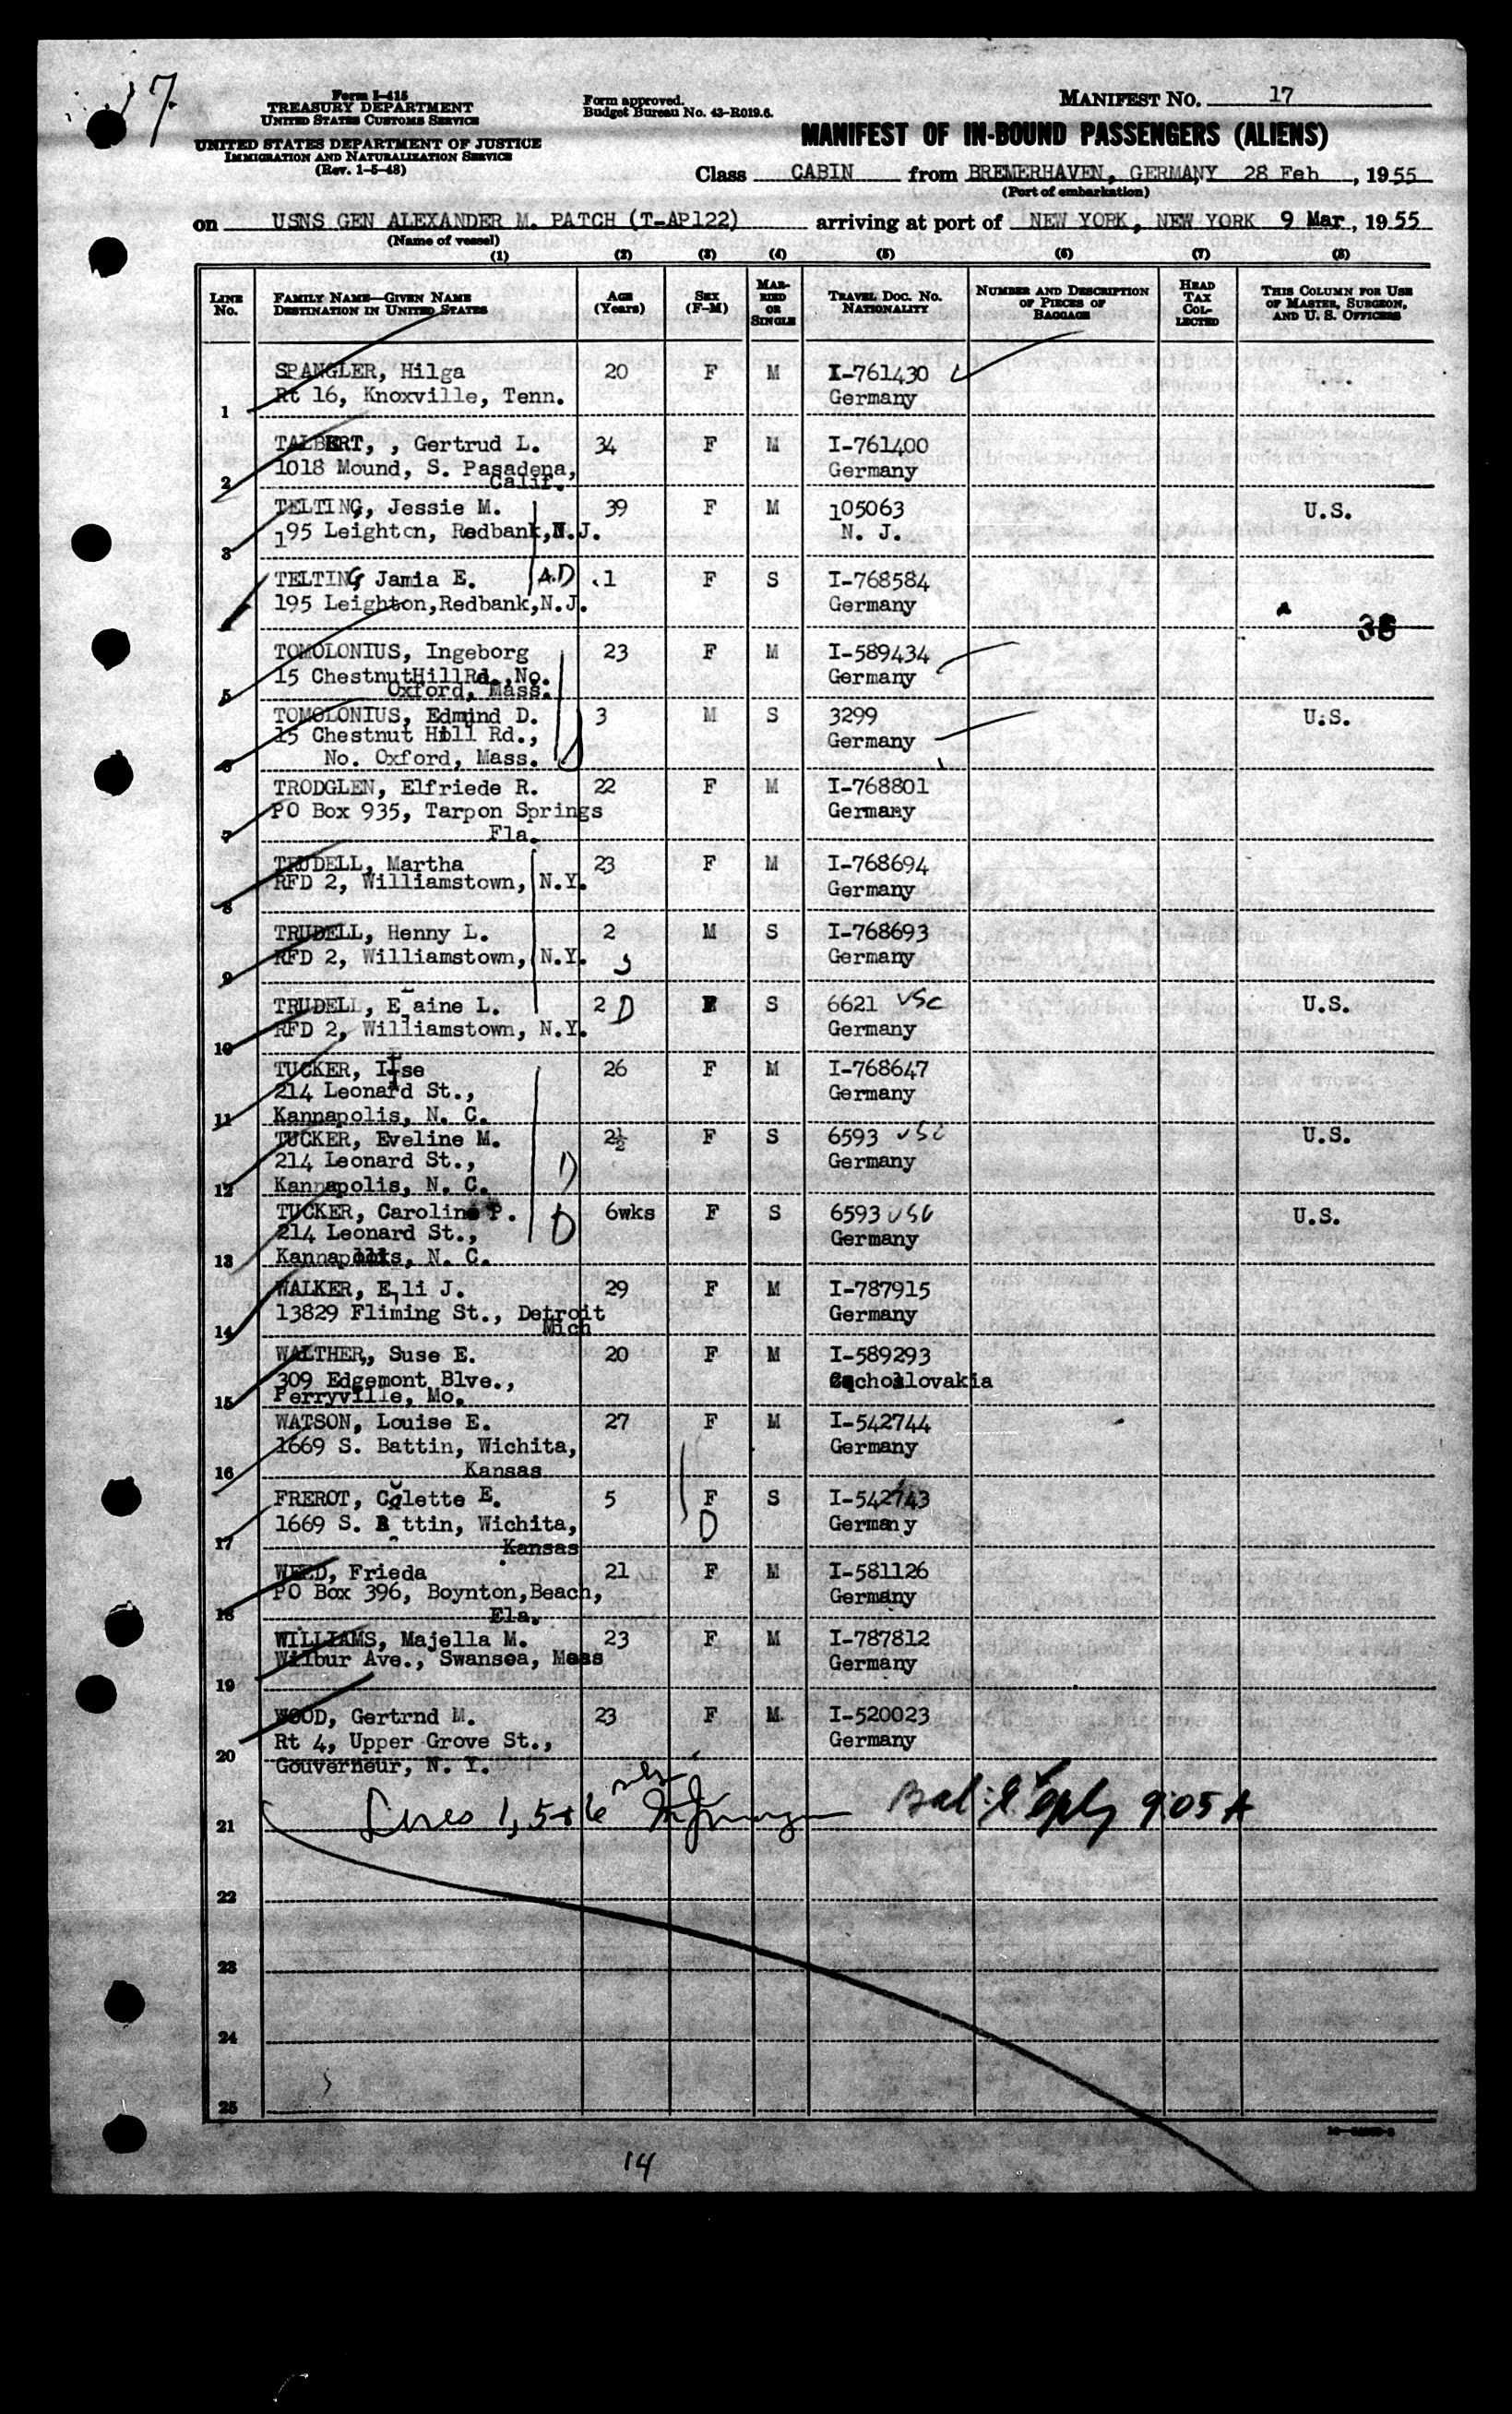 17
Form I-415
TREASURY DEPARTMENT
UNITED STATES CUSTOMS SERVICE
UNITED STATES DEPARTMENT OF JUSTICE
IMMIGRATION AND NATURALIZATION SERVICE
(Rev. 1-5-48)
Form approved.
Budget Bureau No. 43-R019.6.
MANIFEST NO. 17
MANIFEST OF IN-BOUND PASSENGERS (ALIENS)
Class CABIN from BREMERHAVEN, GERMANY 28 Feb, 1955
(Port of embarkation)
on USNS GEN ALEXANDER M. PATCH (T-AP122) arriving at port of NEW YORK, NEW YORK 9 Mar, 1955
(Name of vessel)
(1) (2) (3) (4) (5) (6) (7) (8)
LINE No. FAMILY NAME—GIVEN NAME DESTINATION IN UNITED STATES AGE (Years) SEX (F-M) MARRIED OR SINGLE TRAVEL DOC. NO. NATIONALITY NUMBER AND DESCRIPTION OF PIECES OF BAGGAGE HEAD TAX COLLECTED THIS COLUMN FOR USE OF MASTER, SURGEON, AND U. S. OFFICERS
SPANGLER, Hilga 20 F M I-761430
1 Rt 16, Knoxville, Tenn. Germany
TALBERT, , Gertrud L. 34 F M I-761400
1018 Mound, S. Pasadena, Germany
2 Calif.
TELTING, Jessie M. 39 F M 105063 U.S.
3 195 Leighton, Redbank,N.J. N. J.
TELTING Jamia E. A.D .1 F S I-768584
4 195 Leighton,Redbank,N.J. Germany
38
TOMOLONIUS, Ingeborg 23 F M I-589434
15 ChestnutHillRd.,No. Germany
5 Oxford, Mass.
TOMOLONIUS, Edmind D. 3 M S 3299 U.S.
15 Chestnut Hill Rd., Germany
6 No. Oxford, Mass.
TRODGLEN, Elfriede R. 22 F M I-768801
PO Box 935, Tarpon Springs Germany
7 Fla.
TRUDELL, Martha 23 F M I-768694
8 RFD 2, Williamstown, N.Y. Germany
TRUDELL, Henny L. 2 M S I-768693
9 RFD 2, Williamstown, N.Y. Germany
TRUDELL, E aine L. 2 D F S 6621 USC U.S.
10 RFD 2, Williamstown, N.Y. Germany
TUCKER, Ilse 26 F M I-768647
214 Leonard St., Germany
11 Kannapolis, N. C.
TUCKER, Eveline M. 2½ F S 6593 USC U.S.
214 Leonard St., D Germany
12 Kannapolis, N. C.
TUCKER, Caroline P. 6wks F S 6593 USC U.S.
214 Leonard St., D Germany
13 Kannapolis, N. C.
WALKER, Elli J. 29 F M I-787915
13829 Fliming St., Detroit Germany
14 Mich
WALTHER, Suse E. 20 F M I-589293
309 Edgemont Blve.,
15 Perryville, Mo.
WATSON, Louise E. 27 F M I-542744
1669 S. Battin, Wichita, Germany
16 Kansas
FREROT, Colette E. 5 F S I-542743
1669 S. B ttin, Wichita, D Germany
17 Kansas
WEED, Frieda 21 F M I-581126
PO Box 396, Boynton,Beach, Germany
18 Fla.
WILLIAMS, Majella M. 23 F M I-787812
19 Wilbur Ave., Swansea, Mass Germany
WOOD, Gertrnd M. 23 F M I-520023
Rt 4, Upper Grove St., Germany
20 Gouverneur, N. Y.
21 Lines 1, 5+6 9:05 A
22
23
24
25
14